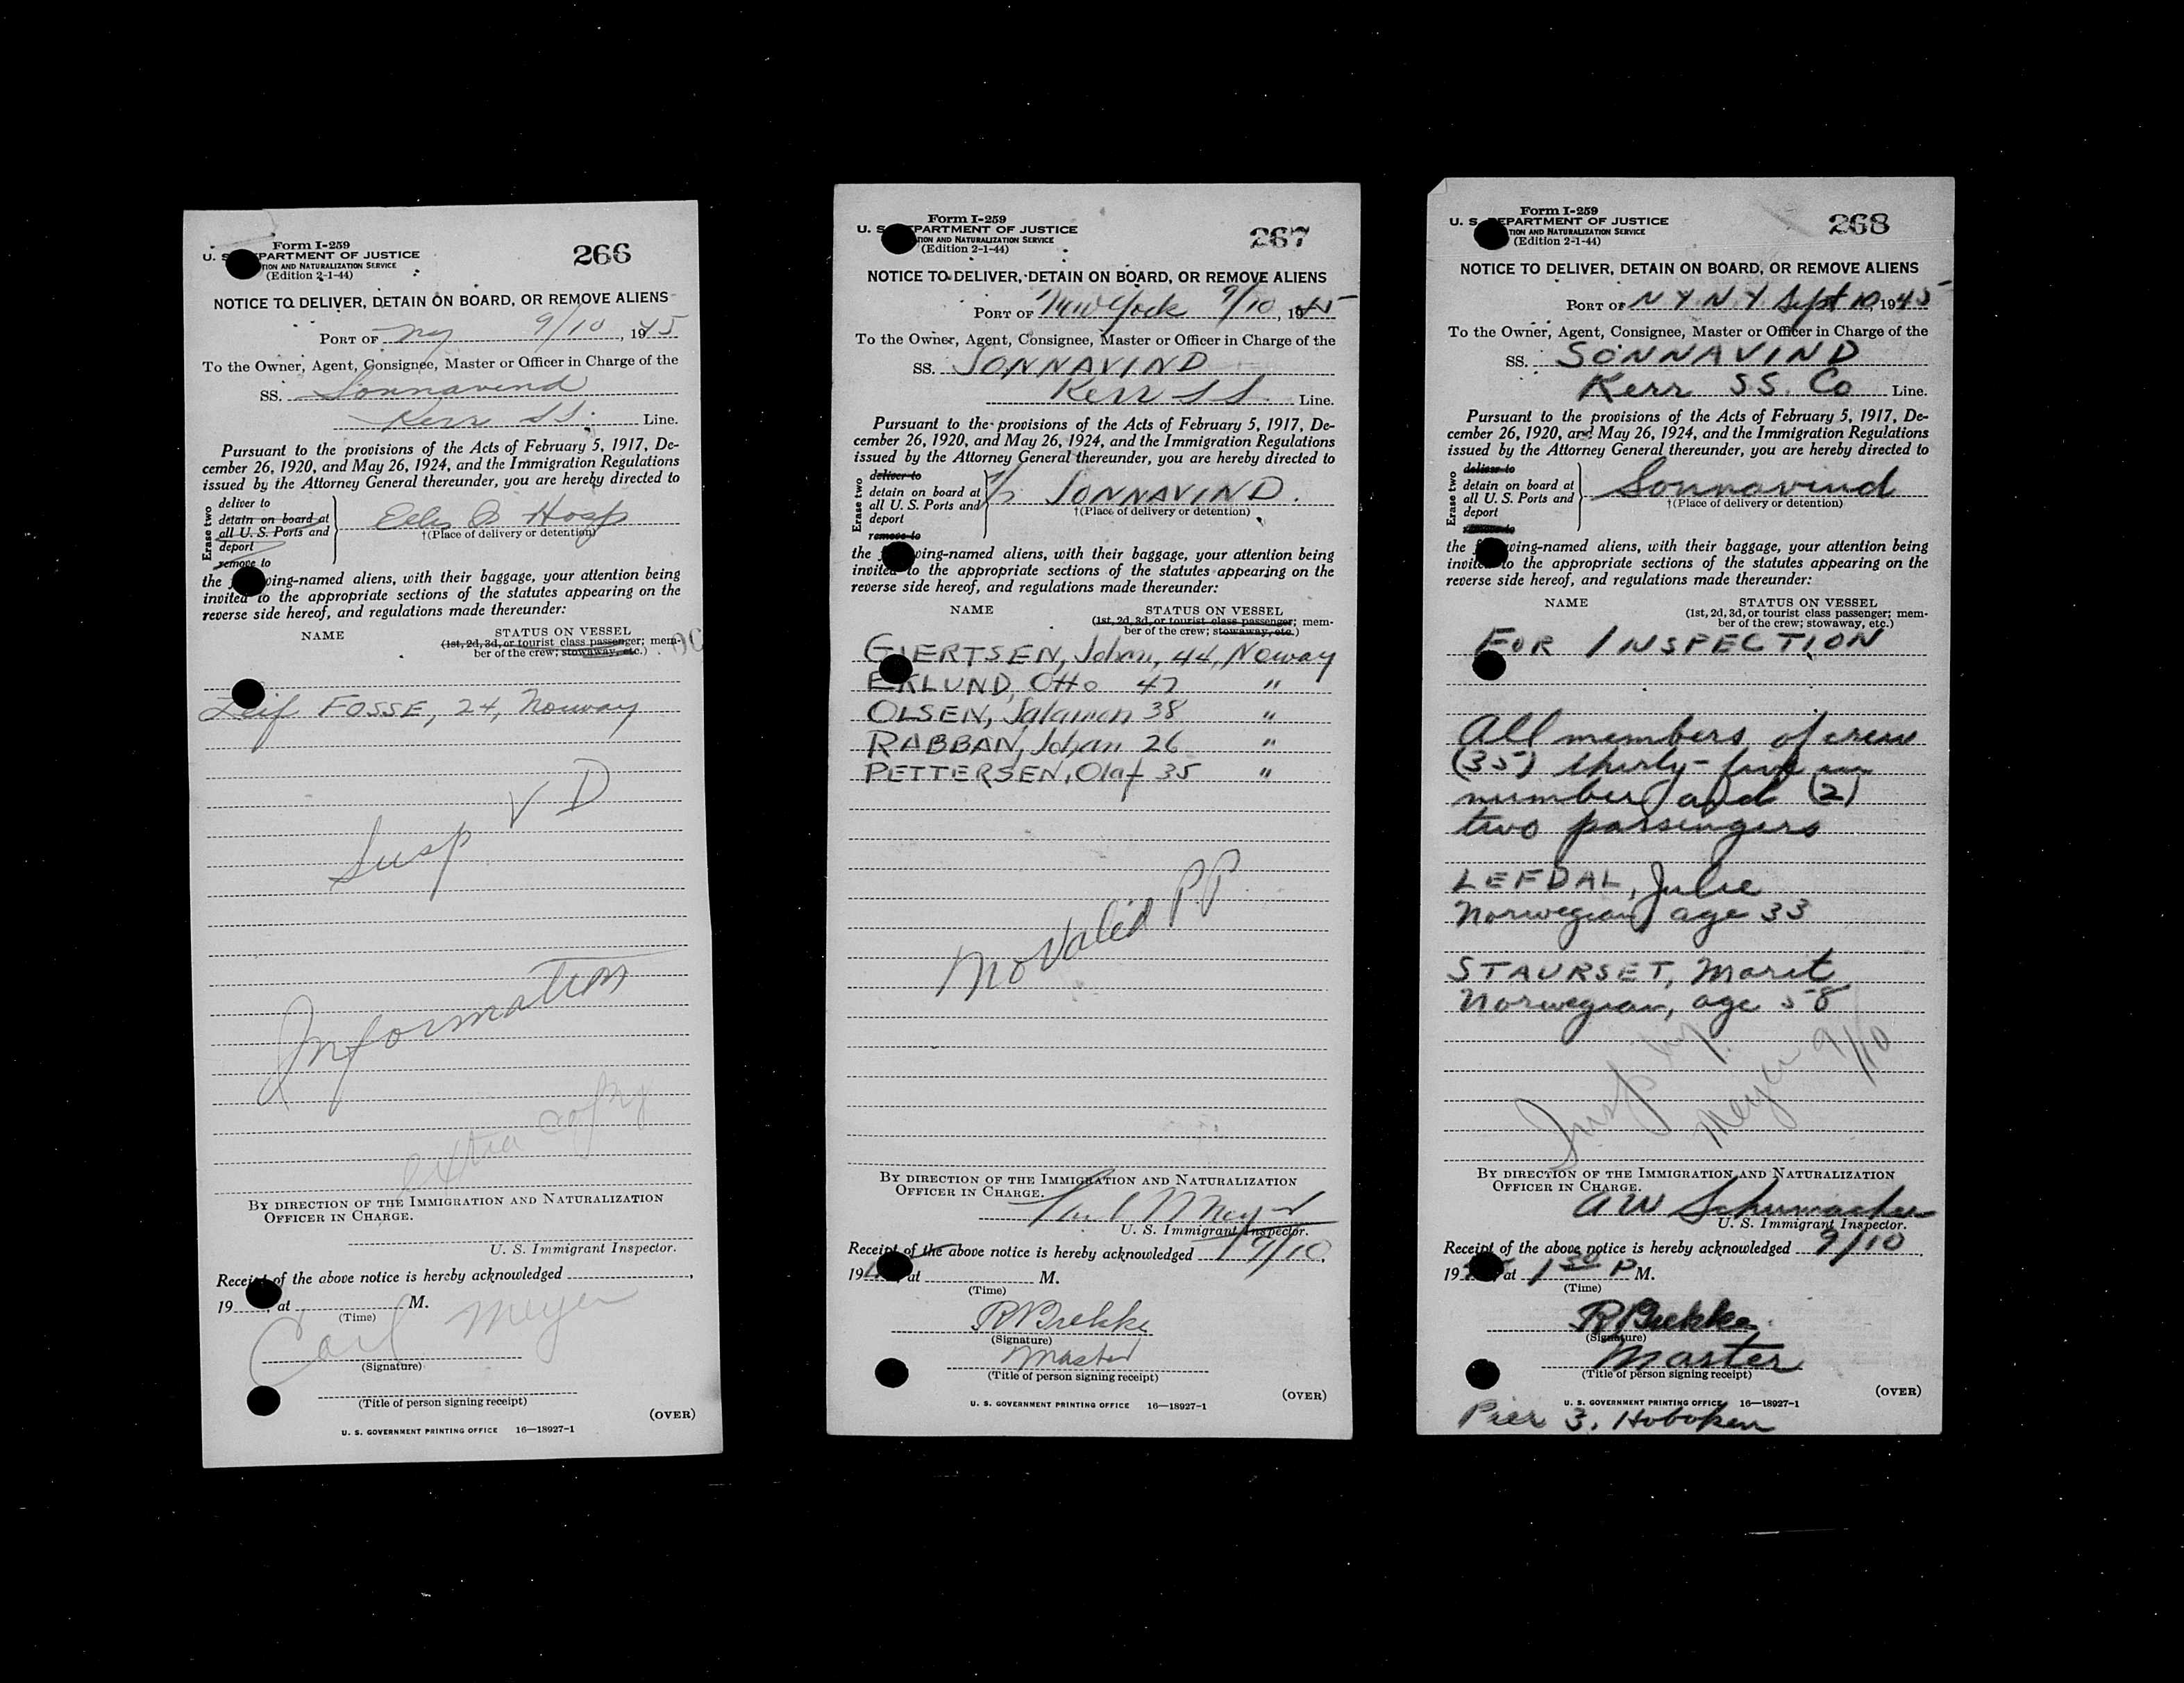 Form I-259
U. S. DEPARTMENT OF JUSTICE
TION AND NATURALIZATION SERVICE
(Edition 2-1-44)
266
NOTICE TO DELIVER, DETAIN ON BOARD, OR REMOVE ALIENS
PORT OF NY 9/10, 1945
To the Owner, Agent, Consignee, Master or Officer in Charge of the
SS. Sonnavind
Kerr SS. Line.
Pursuant to the provisions of the Acts of February 5, 1917, De-
cember 26, 1920, and May 26, 1924, and the Immigration Regulations
issued by the Attorney General thereunder, you are hereby directed to
Erase two
deliver to
detain on board at
all U. S. Ports and
deport
remove to
Hosp
†(Place of delivery or detention)
the following-named aliens, with their baggage, your attention being
invited to the appropriate sections of the statutes appearing on the
reverse side hereof, and regulations made thereunder:
NAME
STATUS ON VESSEL
(1st, 2d, 3d, or tourist class passenger; mem-
ber of the crew; stowaway, etc.)
Leif FOSSE, 24, Norway
V D
Susp
Information
extra copy
BY DIRECTION OF THE IMMIGRATION AND NATURALIZATION
OFFICER IN CHARGE.
U. S. Immigrant Inspector.
Receipt of the above notice is hereby acknowledged
19 , at M.
(Time)
Carl Meyer
(Signature)
(Title of person signing receipt)
(OVER)
U. S. GOVERNMENT PRINTING OFFICE 16—18927-1
Form I-259
U. S. DEPARTMENT OF JUSTICE
TION AND NATURALIZATION SERVICE
(Edition 2-1-44)
267
NOTICE TO DELIVER, DETAIN ON BOARD, OR REMOVE ALIENS
PORT OF New York 9/10, 1945
To the Owner, Agent, Consignee, Master or Officer in Charge of the
SS. SONNAVIND
Kerr SS. Line.
Pursuant to the provisions of the Acts of February 5, 1917, De-
cember 26, 1920, and May 26, 1924, and the Immigration Regulations
issued by the Attorney General thereunder, you are hereby directed to
Erase two
deliver to
detain on board at
all U. S. Ports and
deport
remove to
SONNAVIND.
†(Place of delivery or detention)
the following-named aliens, with their baggage, your attention being
invited to the appropriate sections of the statutes appearing on the
reverse side hereof, and regulations made thereunder:
NAME
STATUS ON VESSEL
(1st, 2d, 3d, or tourist class passenger; mem-
ber of the crew; stowaway, etc.)
GIERTSEN, Johan, 44, Noway
EKLUND, Otto 47 "
OLSEN, Salamon 38 "
RABBAN, Johan 26 "
PETTERSEN, Olaf 35 "
no valid PP
BY DIRECTION OF THE IMMIGRATION AND NATURALIZATION
OFFICER IN CHARGE.
Meyer
U. S. Immigrant Inspector.
Receipt of the above notice is hereby acknowledged 9/10,
19 , at M.
(Time)
R Brekke
(Signature)
Master
(Title of person signing receipt)
(OVER)
U. S. GOVERNMENT PRINTING OFFICE 16—18927-1
Form I-259
U. S. DEPARTMENT OF JUSTICE
TION AND NATURALIZATION SERVICE
(Edition 2-1-44)
268
NOTICE TO DELIVER, DETAIN ON BOARD, OR REMOVE ALIENS
PORT OF N Y. N. Y. Sept 10, 1945
To the Owner, Agent, Consignee, Master or Officer in Charge of the
SS. SONNAVIND
Kerr SS. Co Line.
Pursuant to the provisions of the Acts of February 5, 1917, De-
cember 26, 1920, and May 26, 1924, and the Immigration Regulations
issued by the Attorney General thereunder, you are hereby directed to
Erase two
deliver to
detain on board at
all U. S. Ports and
deport
remove to
Sonnavind
†(Place of delivery or detention)
the following-named aliens, with their baggage, your attention being
invited to the appropriate sections of the statutes appearing on the
reverse side hereof, and regulations made thereunder:
NAME
STATUS ON VESSEL
(1st, 2d, 3d, or tourist class passenger; mem-
ber of the crew; stowaway, etc.)
FOR INSPECTION
All members of crew
(35) thirty-five in
number and (2)
two passengers
LEFDAL, Julie
Norwegian, age 33
STAURSET, Marit
Norwegian, age 58
Insp by
Meyer 9/10
BY DIRECTION OF THE IMMIGRATION AND NATURALIZATION
OFFICER IN CHARGE.
A W Schumacher
U. S. Immigrant Inspector.
Receipt of the above notice is hereby acknowledged 9/10,
19 , at 1 30 P M.
(Time)
R Brekke
(Signature)
Master
(Title of person signing receipt)
(OVER)
U. S. GOVERNMENT PRINTING OFFICE 16—18927-1
Pier 3, Hoboken